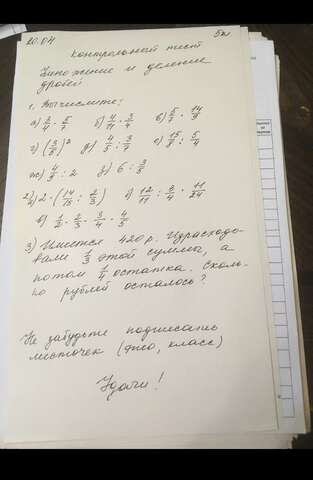 20.04 5кл
контрольный тест
Умножение и деление
дробей
1. Вычислите:
а) 3/4 · 5/7 б) 4/11 · 3/4 в) 5/7 · 14/9
г) (3/5)² д) 4/5 : 3/7 е) 15/8 : 5/4
ж) 4/9 : 2 з) 6 : 3/5
2) а) 2 · (14/15 : 2/3) б) 12/11 : 9/4 · 11/24
в) 1/2 · 2/3 · 3/4 · 4/5
3) Имеется 420 р. Израсходо-
вали 1/3 этой суммы, а
потом 1/4 остатка. Сколь-
ко рублей осталось?
Не забудьте подписать
листочек (фио, класс)
Удачи!